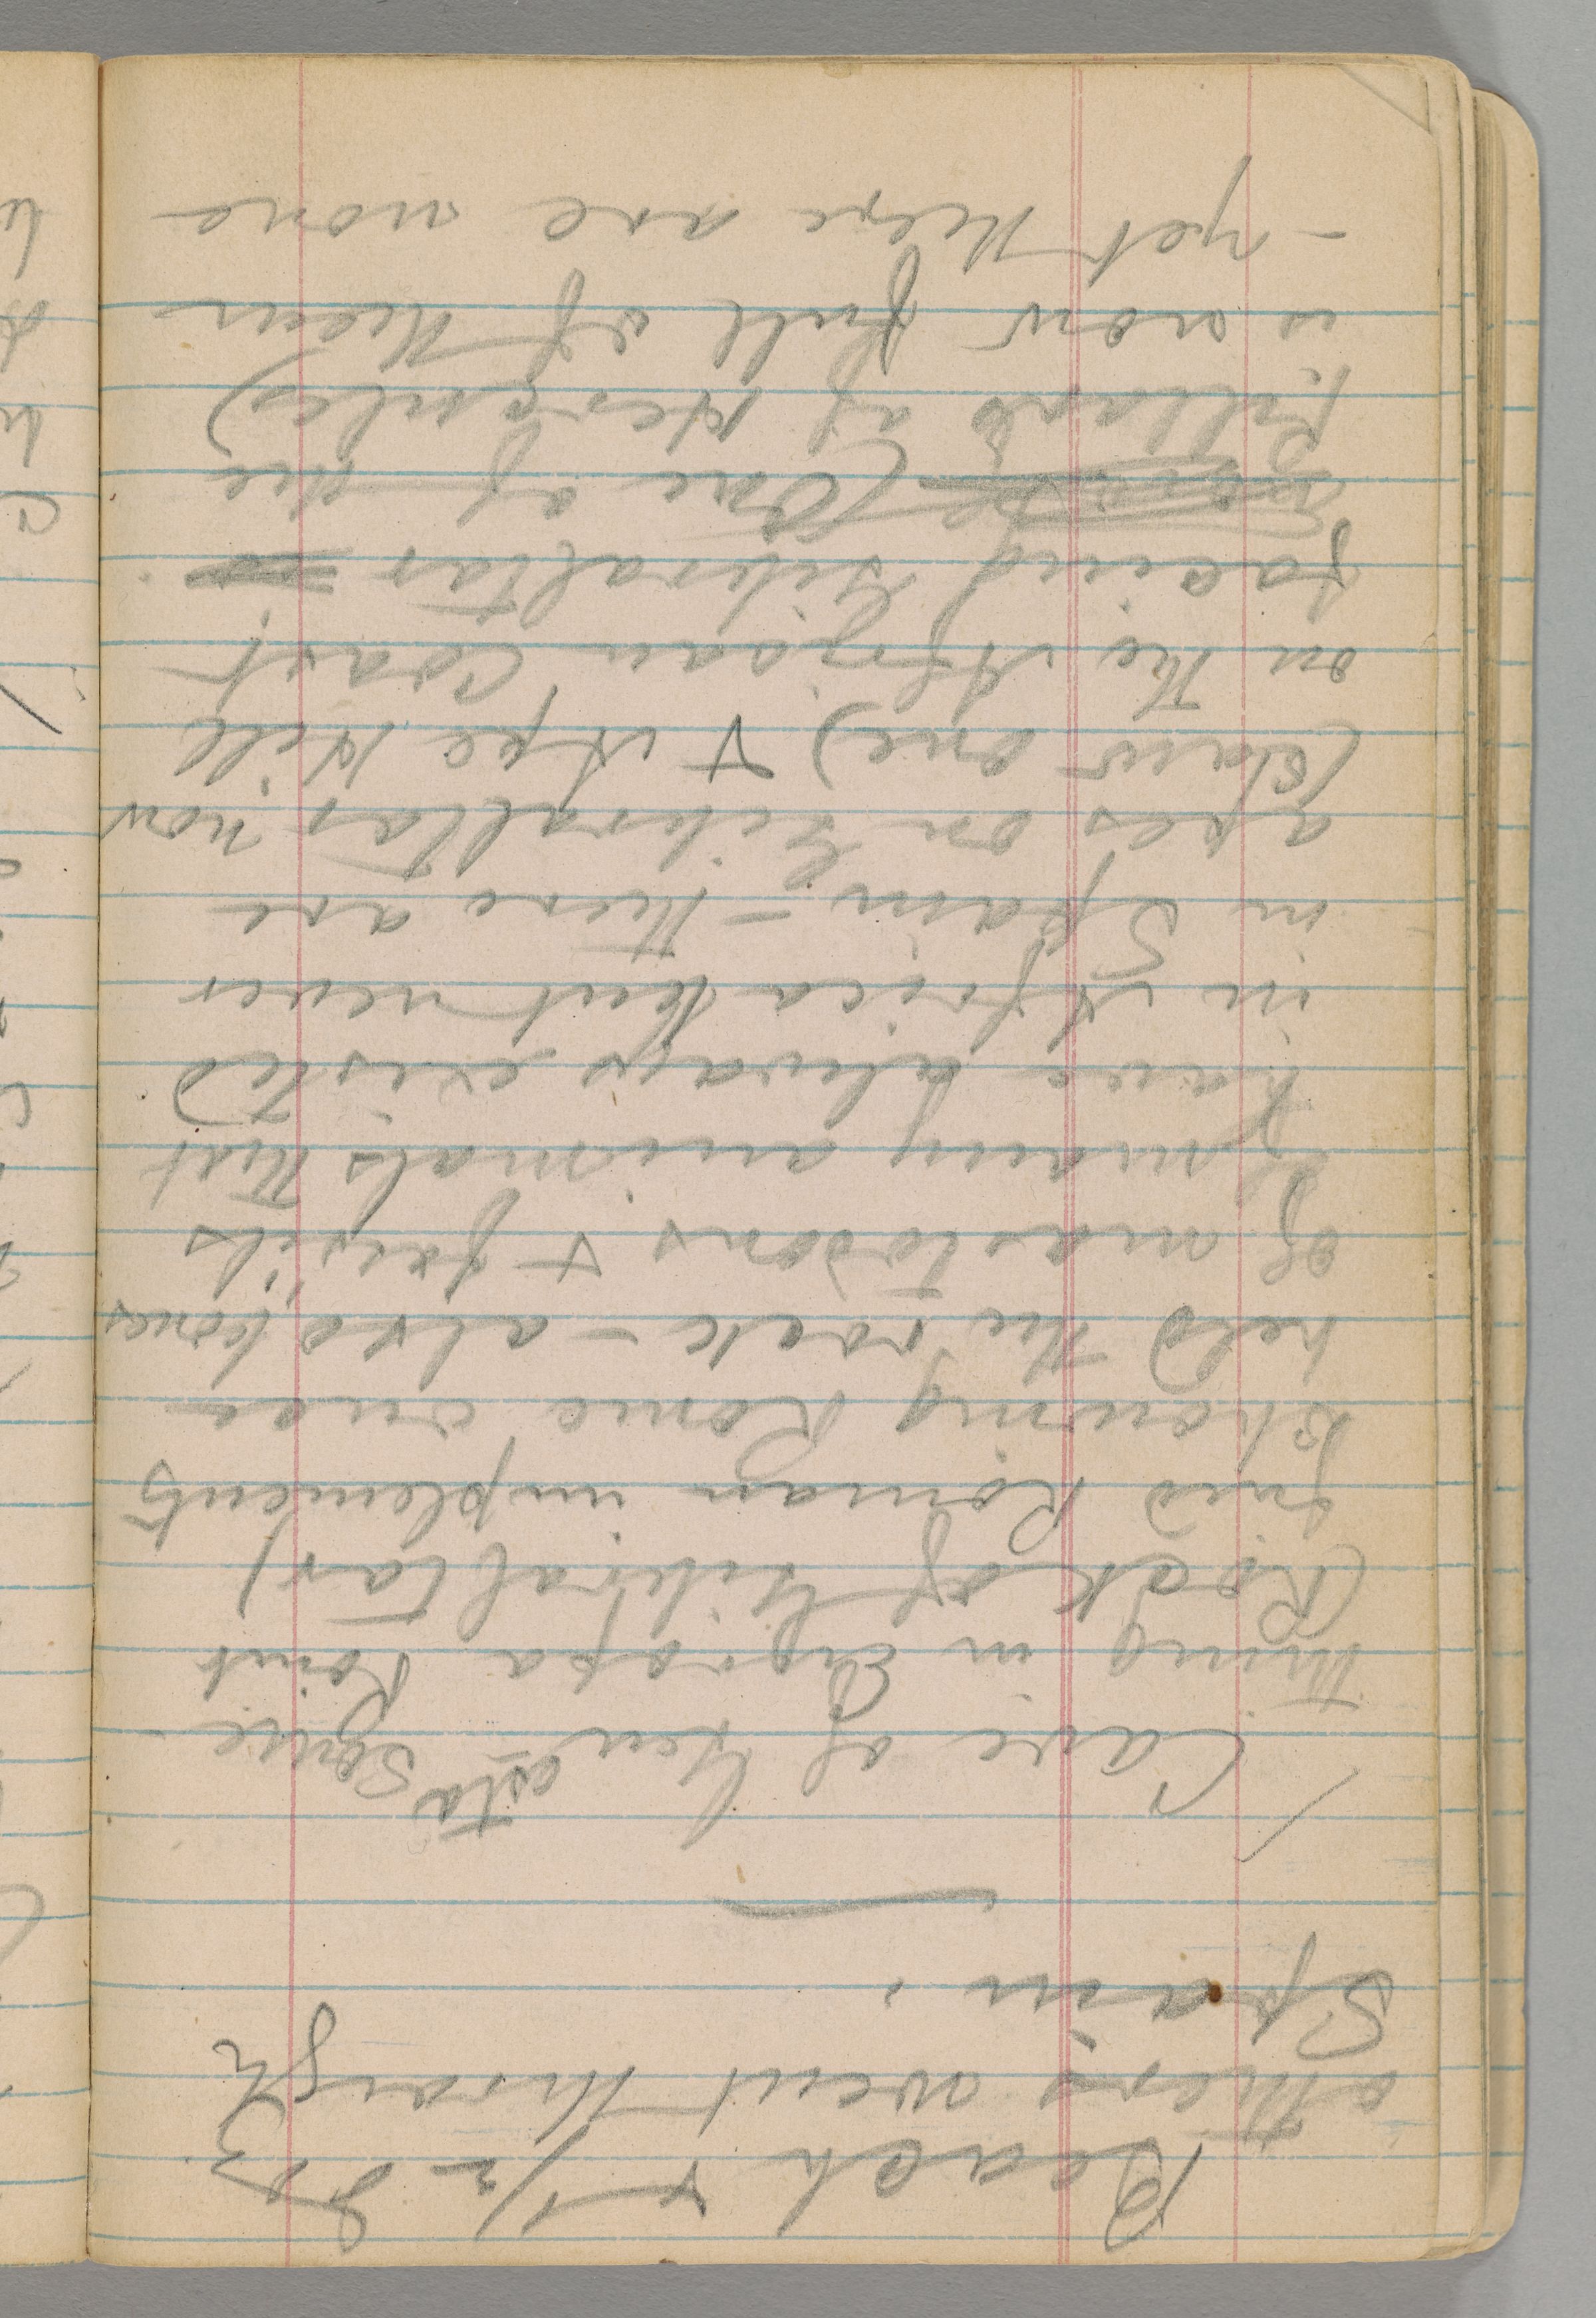 Beach & 1/2 doz
others went through
Spain.
Cave of Genosta Some-
thing in Europa Point
(Rock of Gibraltar)
find Roman implements
Showing Rome once
held the rock - also bones
of mastodons & fossils
of many animals that
have always existed
in Africa but never
in Spain - there are
apes on Gibraltar now
(saw one) & Ape Hill
on the African Coast
facing Gibraltar
(One of the
Pillars of Hercules)
is now full of them
- yet there are none